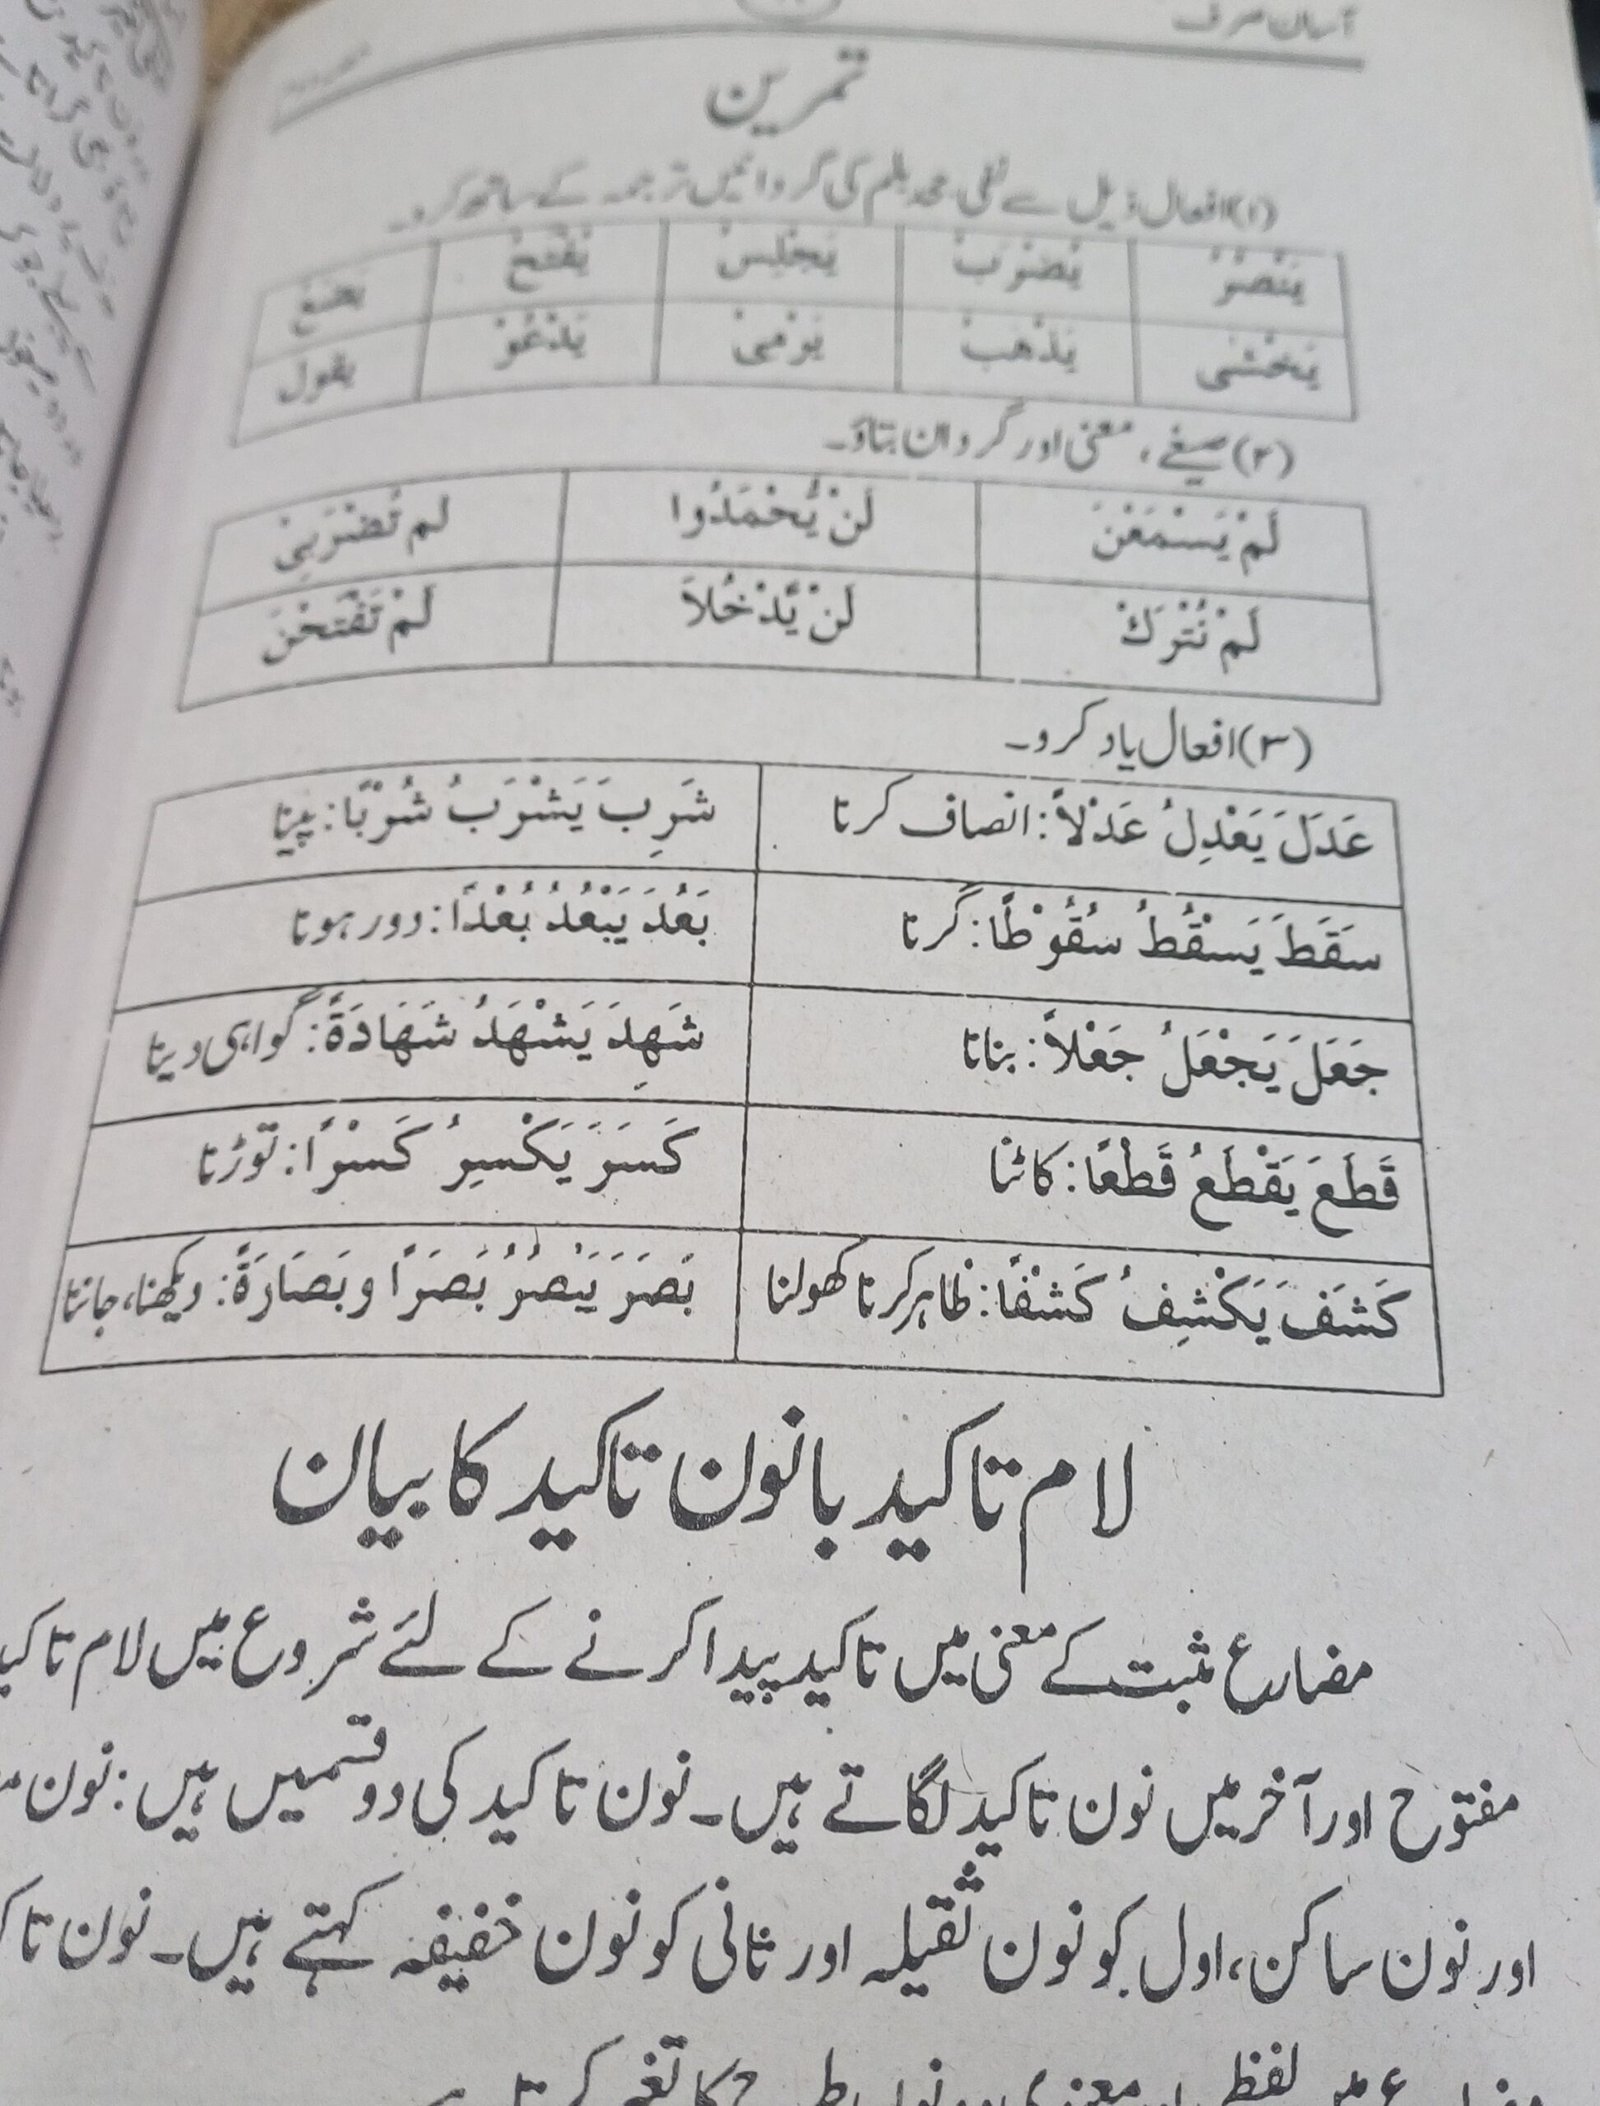 آسان صرف
تمرین
(۱) افعال ذیل سے نفی جحد بلم کی گردانیں ترجمہ کے ساتھ کرو۔
یَنْصُرُ یَضْرِبُ یَجْلِسُ یَفْتَحُ
یَخْشٰی یَذْهَبُ یَرْمِیْ یَدْعُوْ یقول
(۲) صیغے، معنی اور گردان بتاؤ۔
لَمْ یَسْمَعْنَ لَنْ یُّحْمَدُوا لم تُضْرَبِیْ
لَمْ نُتْرَكْ لَنْ یَّدْخُلَا لَمْ تَفْتَحْنَ
(۳) افعال یاد کرو۔
عَدَلَ یَعْدِلُ عَدْلاً: انصاف کرنا شَرِبَ یَشْرَبُ شُرْبًا: پینا
سَقَطَ یَسْقُطُ سُقُوْطًا: گرنا بَعُدَ یَبْعُدُ بُعْدًا: دور ہونا
جَعَلَ یَجْعَلُ جَعْلاً: بنانا شَهِدَ یَشْهَدُ شَهَادَةً: گواہی دینا
قَطَعَ یَقْطَعُ قَطْعًا: کاٹنا کَسَرَ یَکْسِرُ کَسْرًا: توڑنا
کَشَفَ یَکْشِفُ کَشْفًا: ظاہر کرنا کھولنا بَصُرَ یَبْصُرُ بَصَرًا و بَصَارَةً: دیکھنا، جاننا
لام تاکید با نون تاکید کا بیان
مضارع مثبت کے معنی میں تاکید پیدا کرنے کے لئے شروع میں لام تاکید
مفتوح اور آخر میں نون تاکید لگاتے ہیں۔ نون تاکید کی دو قسمیں ہیں: نون
اور نون ساکن، اول کو نون ثقیلہ اور ثانی کو نون خفیفہ کہتے ہیں۔ نون